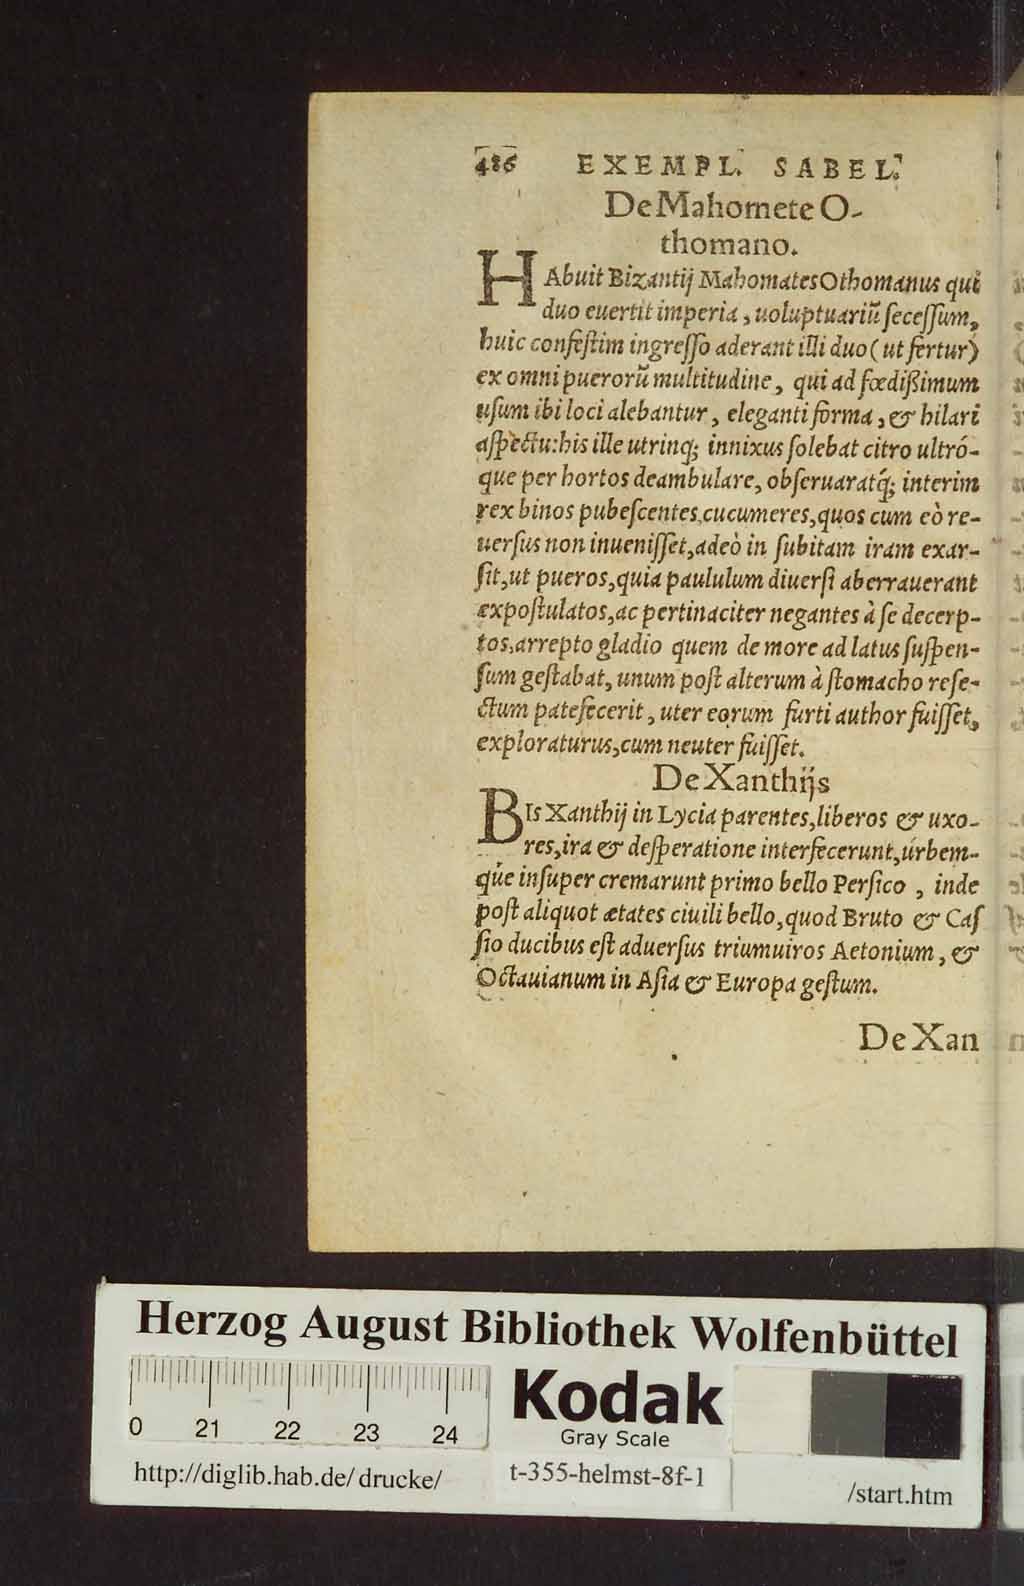 486 EXEMPL. SABEL.
De Mahomete O-
thomano.
HAbuit Bizantij Mahomates Othomanus qui
duo euertit imperia, uoluptuariũ seceſſum,
huic confeſtim ingreſſo aderant illi duo (ut fertur)
ex omni puerorũ multitudine, qui ad fœdißimum
uſum ibi loci alebantur, eleganti forma, & hilari
aſpectu: his ille utrinq; innixus ſolebat citro ultró-
que per hortos deambulare, obſeruaratq́; interim
rex binos pubeſcentes cucumeres, quos cum eò re-
uerſus non inueniſſet, adeò in ſubitam iram exar-
ſit, ut pueros, quia paululum diuerſi aberrauerant
æxpoſtulatos, ac pertinaciter negantes à ſe decerp-
tos, arrepto gladio quem de more ad latus ſuſpen-
ſum geſtabat, unum poſt alterum à ſtomacho reſe-
ctum patefecerit, uter eorum furti author fuiſſet,
exploraturus, cum neuter fuiſſet.
De Xanthijs
BIs Xanthij in Lycia parentes, liberos & uxo-
res, ira & deſperatione interfecerunt, úrbem-
que inſuper cremarunt primo bello Perſico, inde
poſt aliquot ætates ciuili bello, quod Bruto & Caſ
ſio ducibus eſt aduerſus triumuiros Aetonium, &
Octauianum in Aſia & Europa geſtum.
De Xan
Herzog August Bibliothek Wolfenbüttel
0 21 22 23 24
Kodak
Gray Scale
http://diglib.hab.de/drucke/ t-355-helmst-8f-1 /start.htm